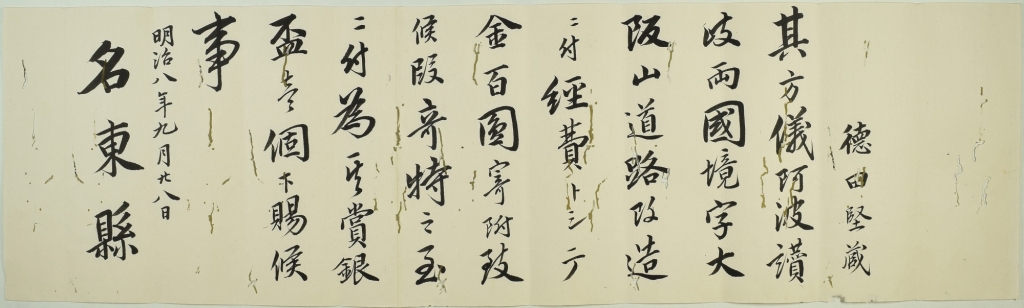 德田堅藏
其方儀阿波讃
岐両國境字大
阪山道路改造
ニ付經費トシテ
金百圓寄附致
候段奇特之至
ニ付為其賞銀
盃壱個下賜候
事
明治八年九月廿八日
名東縣